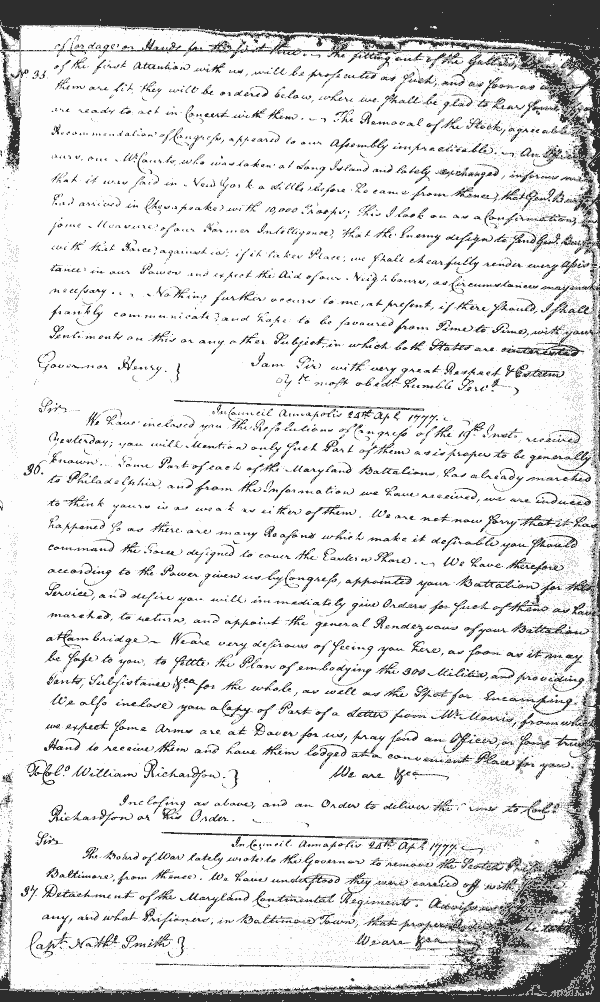 of Cordage or Hands for the first time. ~ The fitting out of the Gallies,
No 35. of the first Attention with us, will be prosecuted as such, and as soon as
them are fit they will be ordered below, where we shall be glad to hear
are ready to act in Concert with them. ~ The Removal of the Stock, agreeable
Recommendation of Congress, appeared to our Assembly impracticable. ~ An
ours, one Mr Courts, who was taken at Long Island and lately exchanged, informs
that it was said in New York a little before he came from thence, that Genl
had arrived in Chesapeake with 10,000 Troops; This I look on as a Confirmation,
some Measure of our Former Intelligence, that the Enemy design to send Genl
with that Force against us; if it takes Place, we shall chearfully render every Assis-
tance in our Power and expect the Aid of our Neighbours, as Circumstances may make
necessary. . ~ Nothing further occurs to me, at present, if there should, I shall
frankly communicate, and hope to be favoured from Time to Time, with your
Sentiments on this or any other Subject, in which both States are interested
Governor Henry. } I am Sir with very great Respect & Esteem
most obedt humble Servt
In Council Annapolis 24th Apl. 1777. ~
Sir
We have inclosed you the Resolutions of Congress of the 19th Inst. received
Yesterday; you will Mention only such Part of them as is proper to be generally
36. known. . Some Part of each of the Maryland Battalions, has already marched
to Philadelphia, and from the Information we have received, we are induced
to think yours is as weak as either of them. We are not now sorry that it has
happened so as there are many Reasons which make it desirable you should
command the Force designed to cover the Eastern Shore. ~ We have therefore
according to the Power given us by Congress, appointed your Battalion for this
Service, and desire you will immediately give Orders for such of them as have
marched, to return, and appoint the general Rendezvous of your Battalion
at Cambridge ~ We are very desirous of seeing you here, as soon as it may
be safe to you, to settle the Plan of embodying the 300 Militia, and providing
Tents, Subsistance &ca for the whole, as well as the Spot for Encamping.
We also inclose you a Copy of Part of a Letter from Mr Morris, from which
we expect some Arms are at Dover for us, pray send an Officer, or some trusty
Hand to receive them and have them lodged at a convenient Place for you.
To Colo William Richardson. } We are &ca
Inclosing as above, and an Order to deliver the to Colo
Richardson or his Order.
In Council Annapolis 24th Apl. 1777. ~
Sir
The Board of War lately wrote to the Governor to remove the Scotch
Baltimore, from thence. We have understood they were carried off with
37. Detachment of the Maryland Continental Regiments. Advise us
any, and what Prisoners, in Baltimore Town, that proper
Capt. Nathl Smith } We are &ca